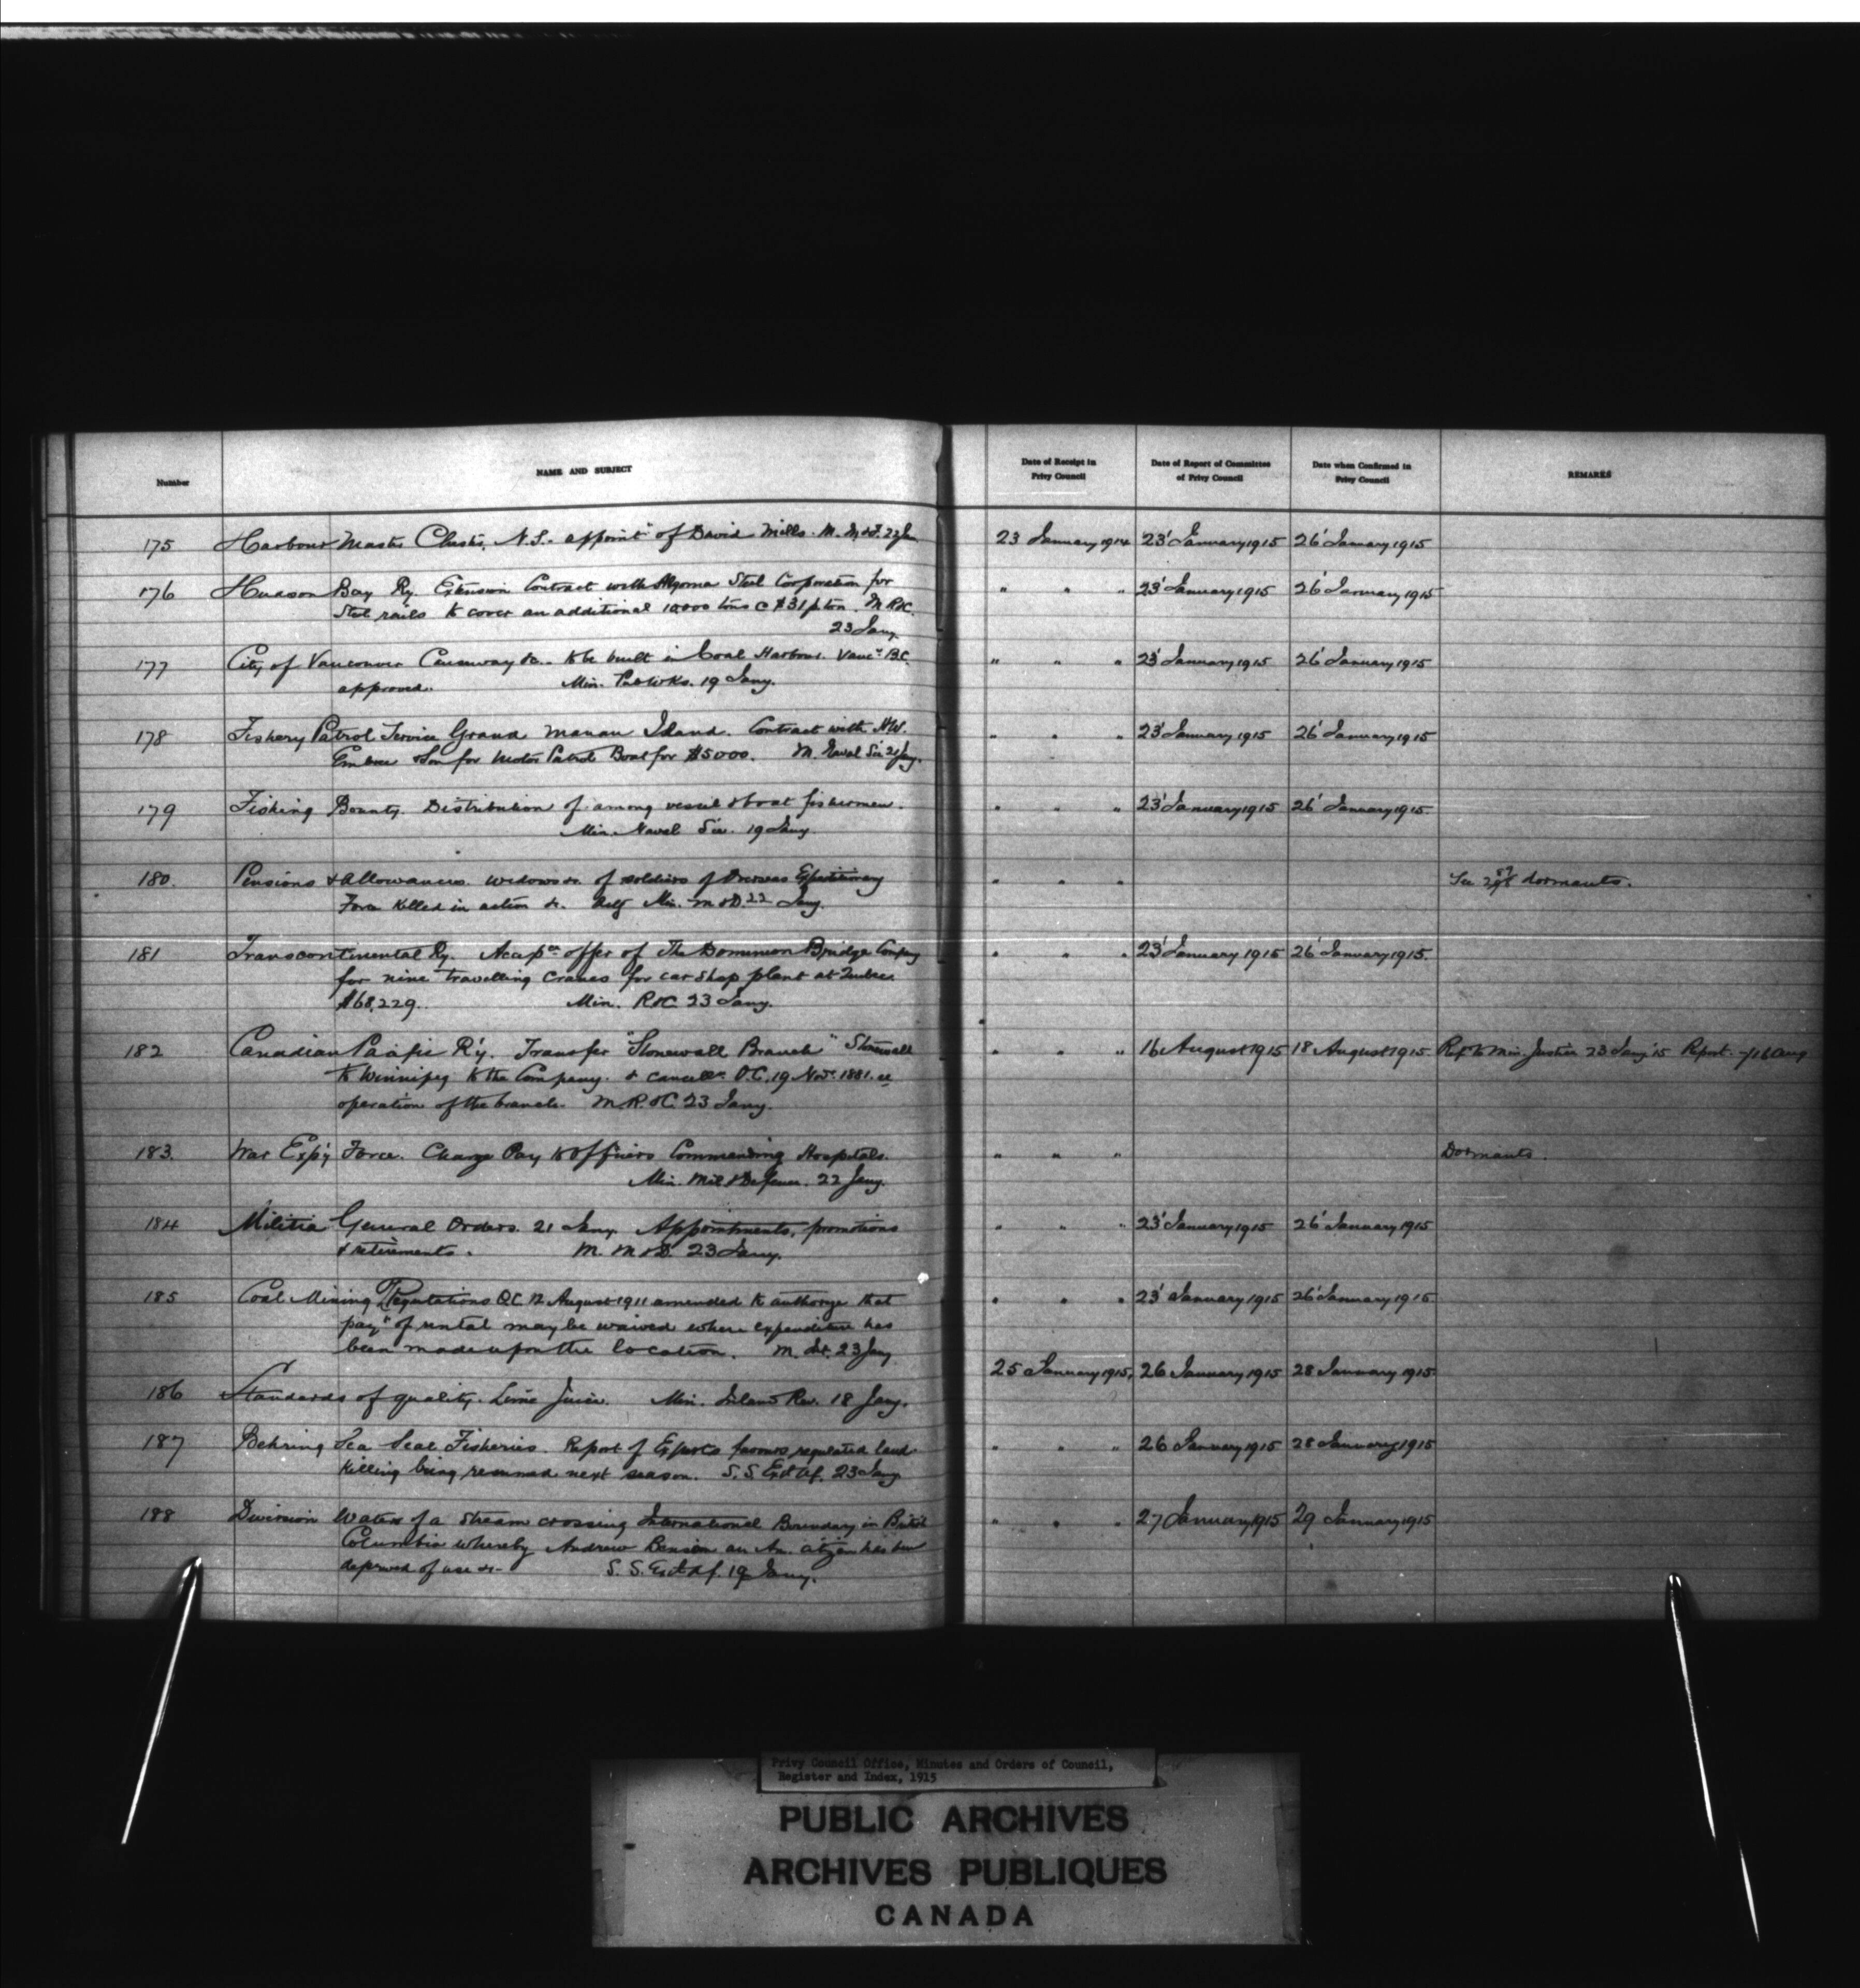 Number
NAME AND SUBJECT
Date of Receipt in
Privy Council
Date of Report of Committee
of Privy Council
Date when Confirmed in
Privy Council
REMARKS
175 Harbour Master Chester, N.S. appoint.t of David Mills. M. M & F. 22 Jan 23 January 1914 23' January 1915 26' January 1915
176 Hudson Bay Ry. Extension Contract with Algoma Steel Corporation for " " " 23' January 1915 26' January 1915
Steel rails to cover an additional 10000 tons @ $31 p ton. M R&C.
23 Jany.
177 City of Vancouver Causeway &c. to be built in Coal Harbour. Vanc.r B.C. " " " 23' January 1915 26' January 1915
approved. Min. Pub Wks. 19 Jany.
178 Fishery Patrol Service Grand Manan Island. Contract with " " " 23' January 1915 26' January 1915
Embree & Son for Motor Patrol Boat for $5000. M. Naval Sec 21 Jany.
179 Fishing Bounty. Distribution of among vessel & boat fishermen. " " " 23' January 1915 26' January 1915
Min. Naval Sec. 19 Jany.
180. Pensions & allowances. widows &c. of soldiers of Overseas Expeditionary " " " See dormants.
Force killed in action &c. Actg Min. M & D. 22 Jany.
181 Transcontinental Ry. Accep.ce offer of The Dominion Bridge Company " " " 23' January 1915 26' January 1915.
for nine travelling cranes for car shop plant at Quebec
$68,229. Min. R&C. 23 Jany.
182 Canadian Pacific R'y. Transfer "Stonewall Branch" Stonewall " " " 16 August 1915 18 August 1915 Ref. to Min. Justice 23 Jany '15 Report 16 Aug
to Winnipeg to the Company. & cancell.n O.C. 19 Nov.r 1881. re
operation of the branch. M. R. & C. 23 Jany.
183. War Exp'y Force. Charge Pay to Officers Commanding Hospitals. " " " Dormants.
Min. Mil & Defence. 22 Jany.
184 Militia General Orders. 21 Jany Appointments, promotions " " " 23' January 1915 26' January 1915
& retirements. M. M & D. 23 Jany.
185 Coal Mining Regulations O.C. 12 August 1911 amended to authorize that " " " 23' January 1915 26' January 1915.
pay.t of rental may be waived where expenditure has
been made upon the location. M. Int. 23 Jany
186 Standards of quality. Lime Juice. Min. Inland Rev. 18 Jany. 25 January 1915, 26 January 1915 28 January 1915.
187 Behring Sea Seal Fisheries. Report of Experts favours regulated land " " " 26 January 1915 28 January 1915
killing being resumed next season. S. S. Ext Af. 23 Jany
188 Diversion Waters of a Stream crossing International Boundary in British " " " 27 January 1915 29 January 1915
Columbia whereby Andrew Benson an Am. citizen has been
deprived of use &c. S. S. Ext Af. 19 Jany.
Privy Council Office, Minutes and Orders of Council,
Register and Index, 1915
PUBLIC ARCHIVES
ARCHIVES PUBLIQUES
CANADA